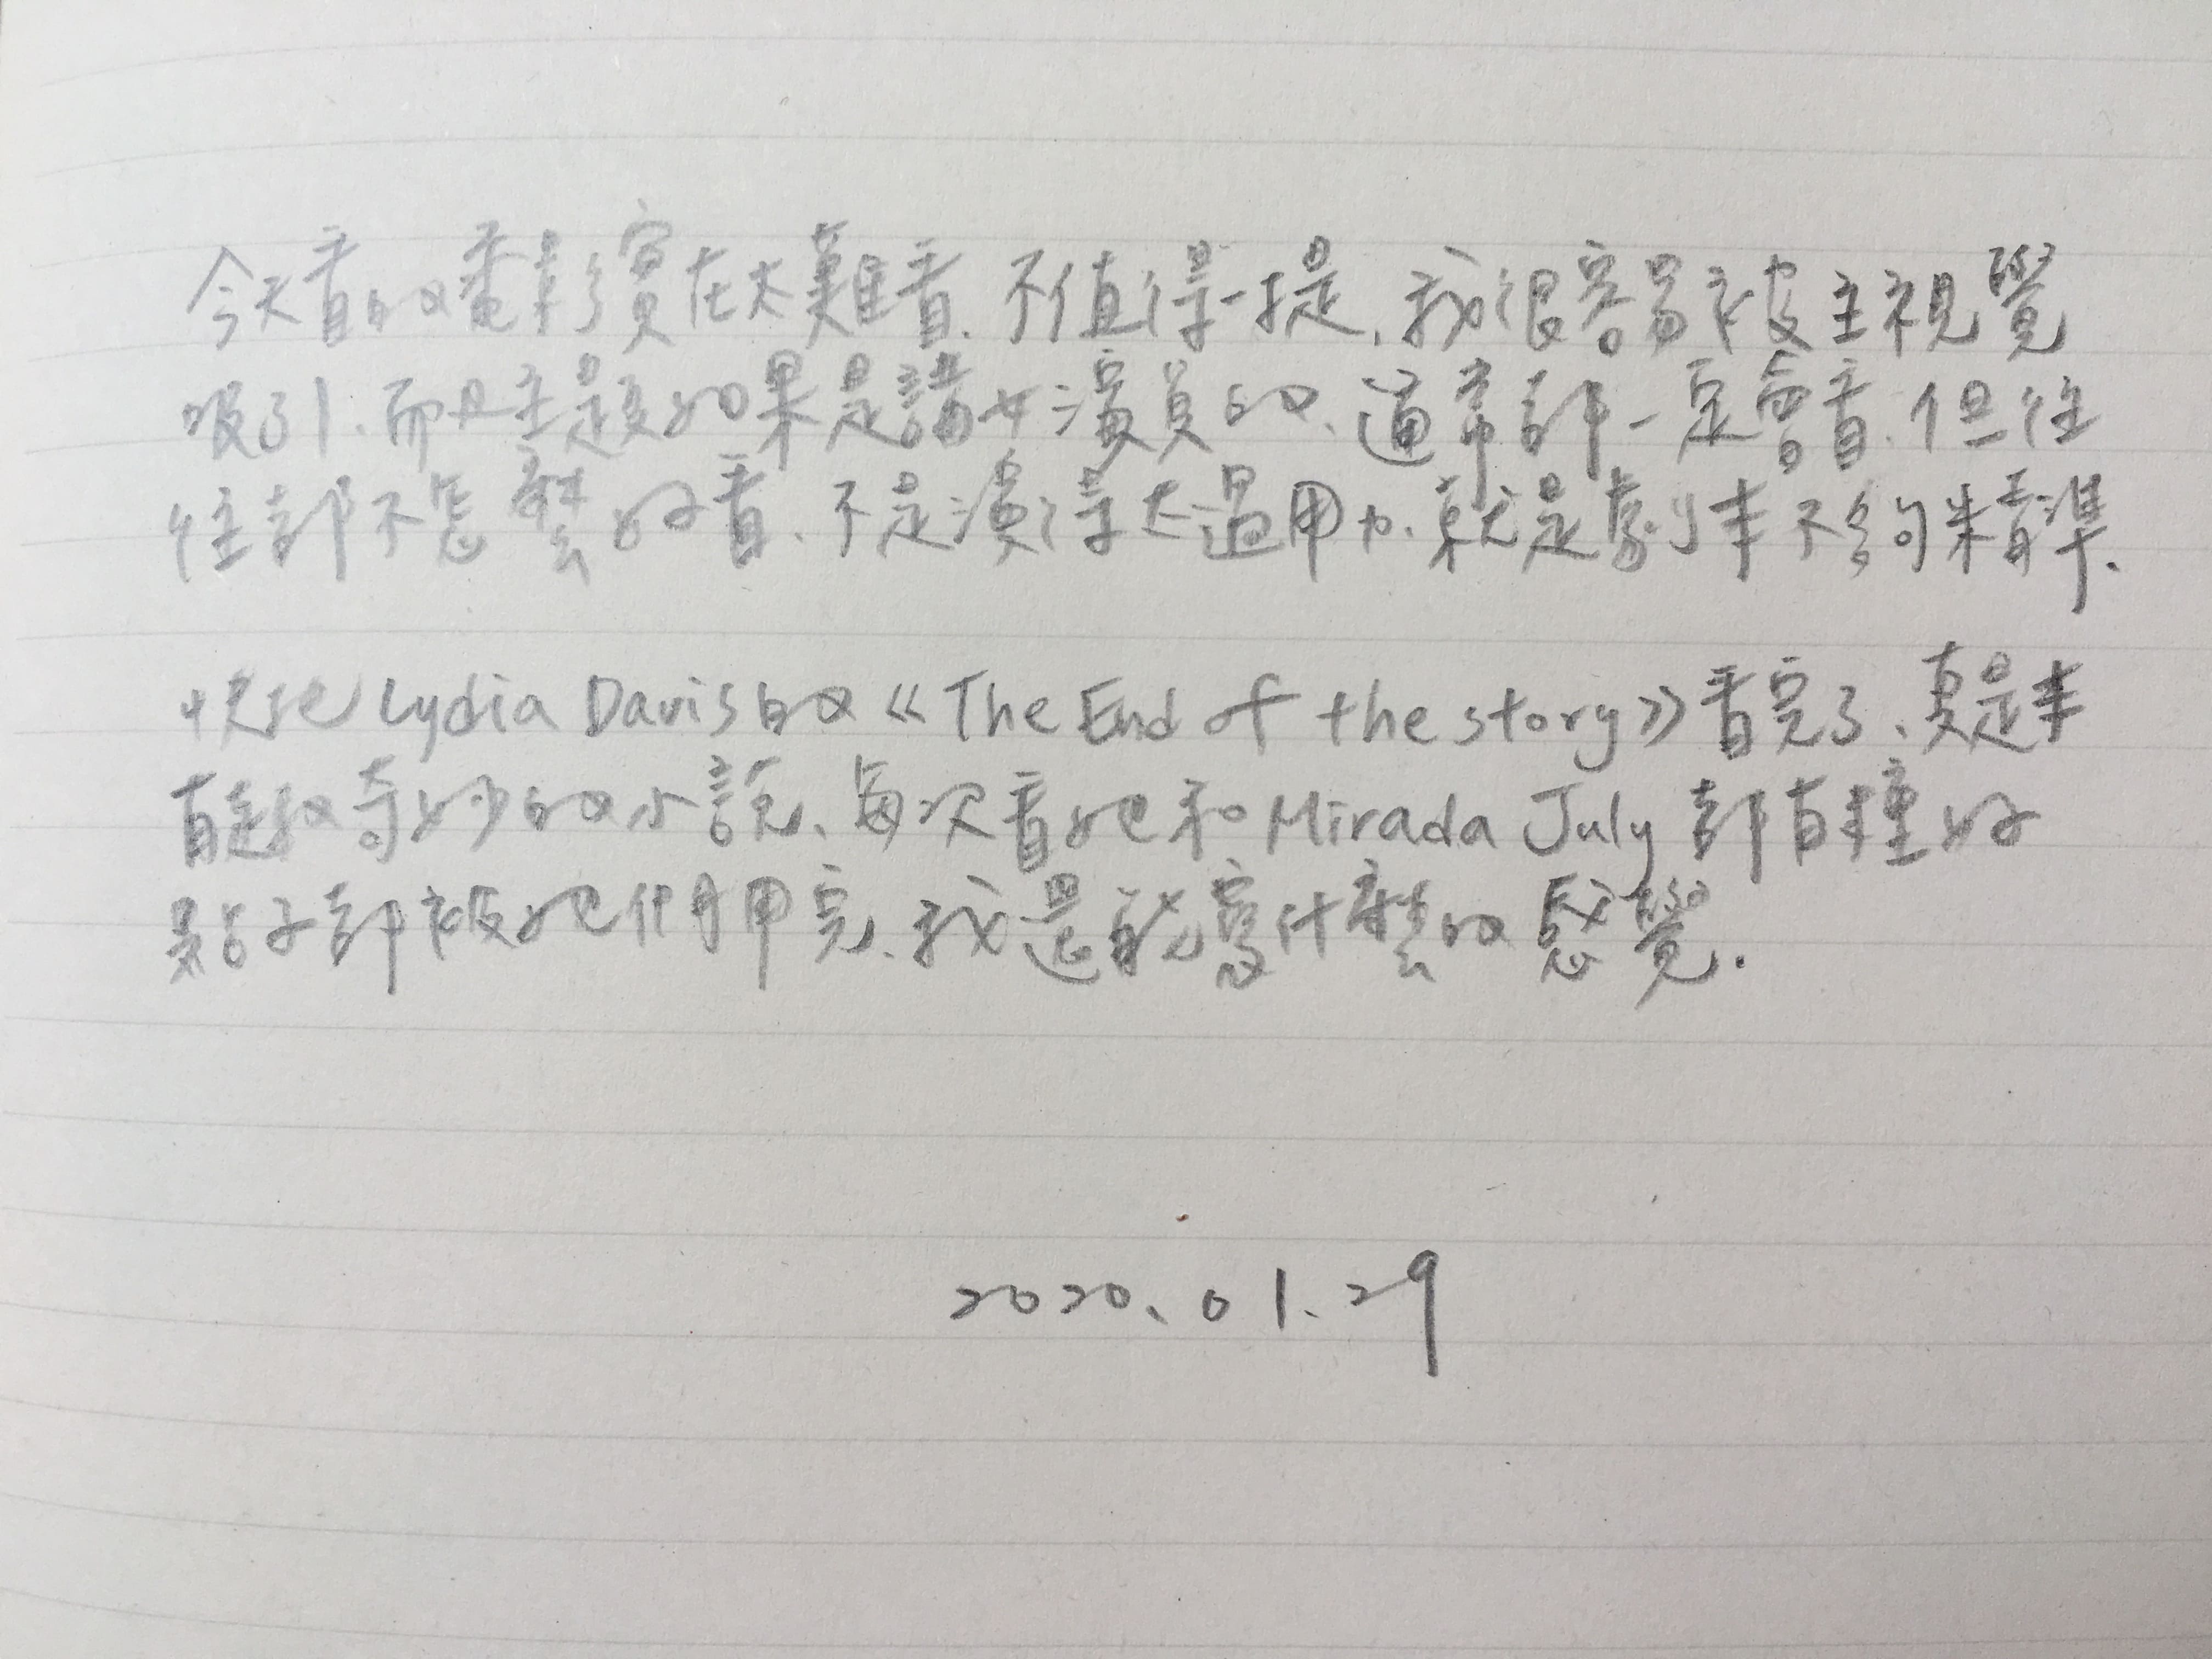 今天看的電影實在太難看、不值得一提、我很容易被主視覺
吸引、而且主題如果是講女演員的、通常都一定會看、但往
往都不怎麼好看、不是演得太過用力、就是劇本不夠精準.
快把 Lydia Davis 的 《The End of the story》看完了、真是本
有趣又奇妙的小說、每次看她和 Mirada July 都有種好
點子都被她們用完、我還能寫什麼的感覺.
2020.01.29